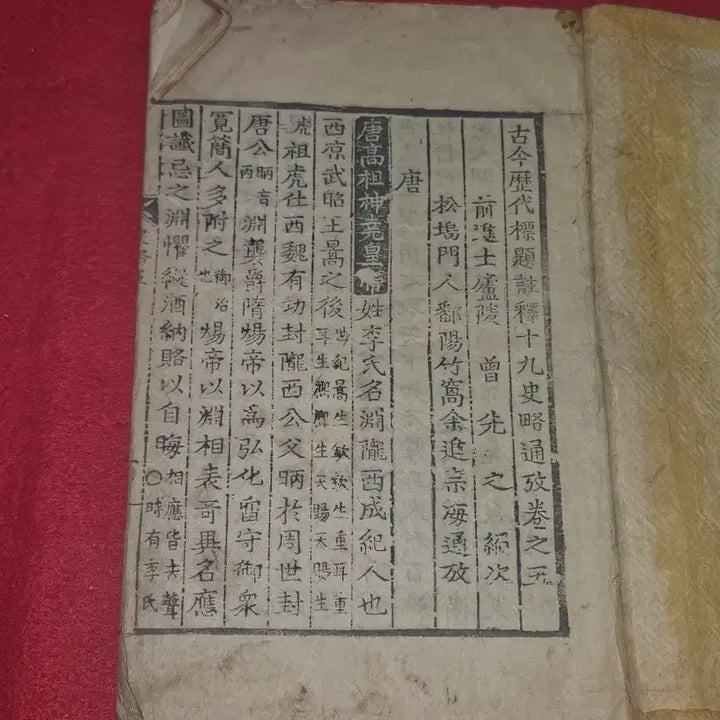 古今歴代標題註釋十九史略通攷卷之五
前進士廬陵 曾 先 之 編次
松塢門人鄱陽竹窩余進宗海通攷
唐
唐高祖神堯皇帝姓李氏名淵隴西成紀人也
西凉武昭王暠之後世紀暠生歆歆生重耳重耳生熈熈生天賜天賜生
虎祖虎仕西魏有功封隴西公父昞於周世封
唐公昞音丙淵襲爵隋煬帝以爲弘化留守御衆
寛簡人多附之御治也煬帝以淵相表奇異名應
圖讖忌之淵懼縱酒納賂以自晦相應皆去聲○時有李氏